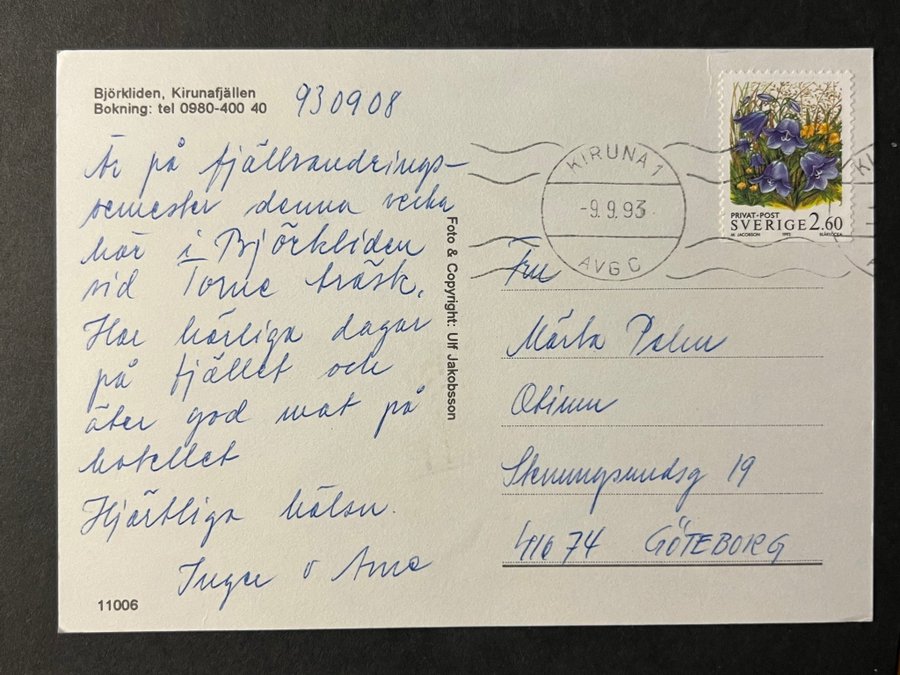 Björkliden, Kirunafjällen
Bokning: tel 0980-400 40
930908
Är på fjällvandrings-
semester denna vecka
här i Björkliden
vid Torne träsk.
Har härliga dagar
på fjället och
äter god mat på
hotellet
Hjärtliga hälsn.
Inger o Arne
11006
Foto & Copyright: Ulf Jakobsson
KIRUNA 1
-9.9.93
AVG C
PRIVAT-POST
SVERIGE 2.60
M. JACOBSON 1993 BLÅKLOCKA
Fru
Märta Palm
Stenungsundsg 19
416 74 GÖTEBORG